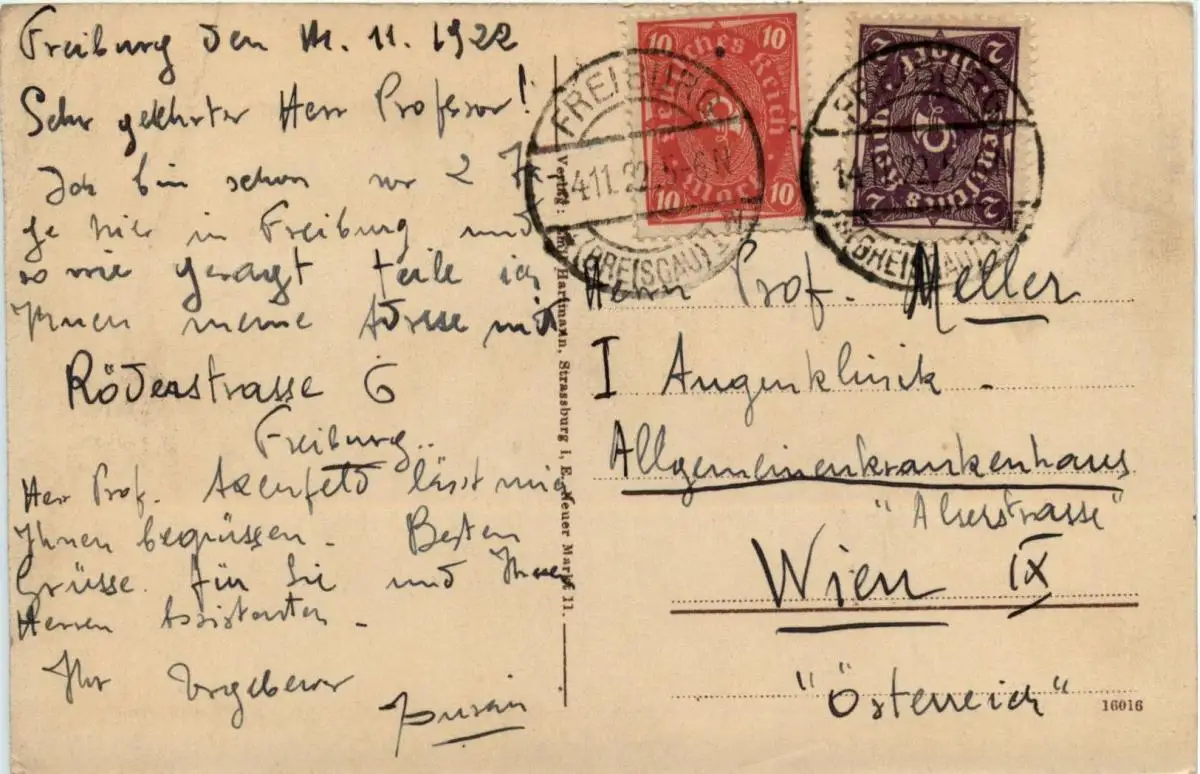 Freiburg den 11. 1922
Sehr geehrter Herr Professor!
Ich bin schon vor 2 Ta
ge hier in Freiburg und
so wie gesagt teile ich
Ihnen meine Adresse mit
Röderstrasse 6
Freiburg..
Herr Prof. Axenfeld lässt mich
Ihnen begrüssen. Besten
Grüsse für Sie und Ihren
Herren Assistenten -
Ihr
Verlag: Hartmann, Strassburg i. E. Neuer Markt 11.
10 10
Deutsches Reich
Mark
10 10
2 2
Deutsches Reich
Mark
2 2
FREIBURG
14.11.22. 5-6 N
(BREISGAU) 1
FREIBURG
14.11.22. 5-6 N
(BREISGAU) 1
Herrn Prof. Meller
I Augenklinik -
Allgemeinenkrankenhaus
"Alserstrasse"
Wien IX
"Österreich"
16016